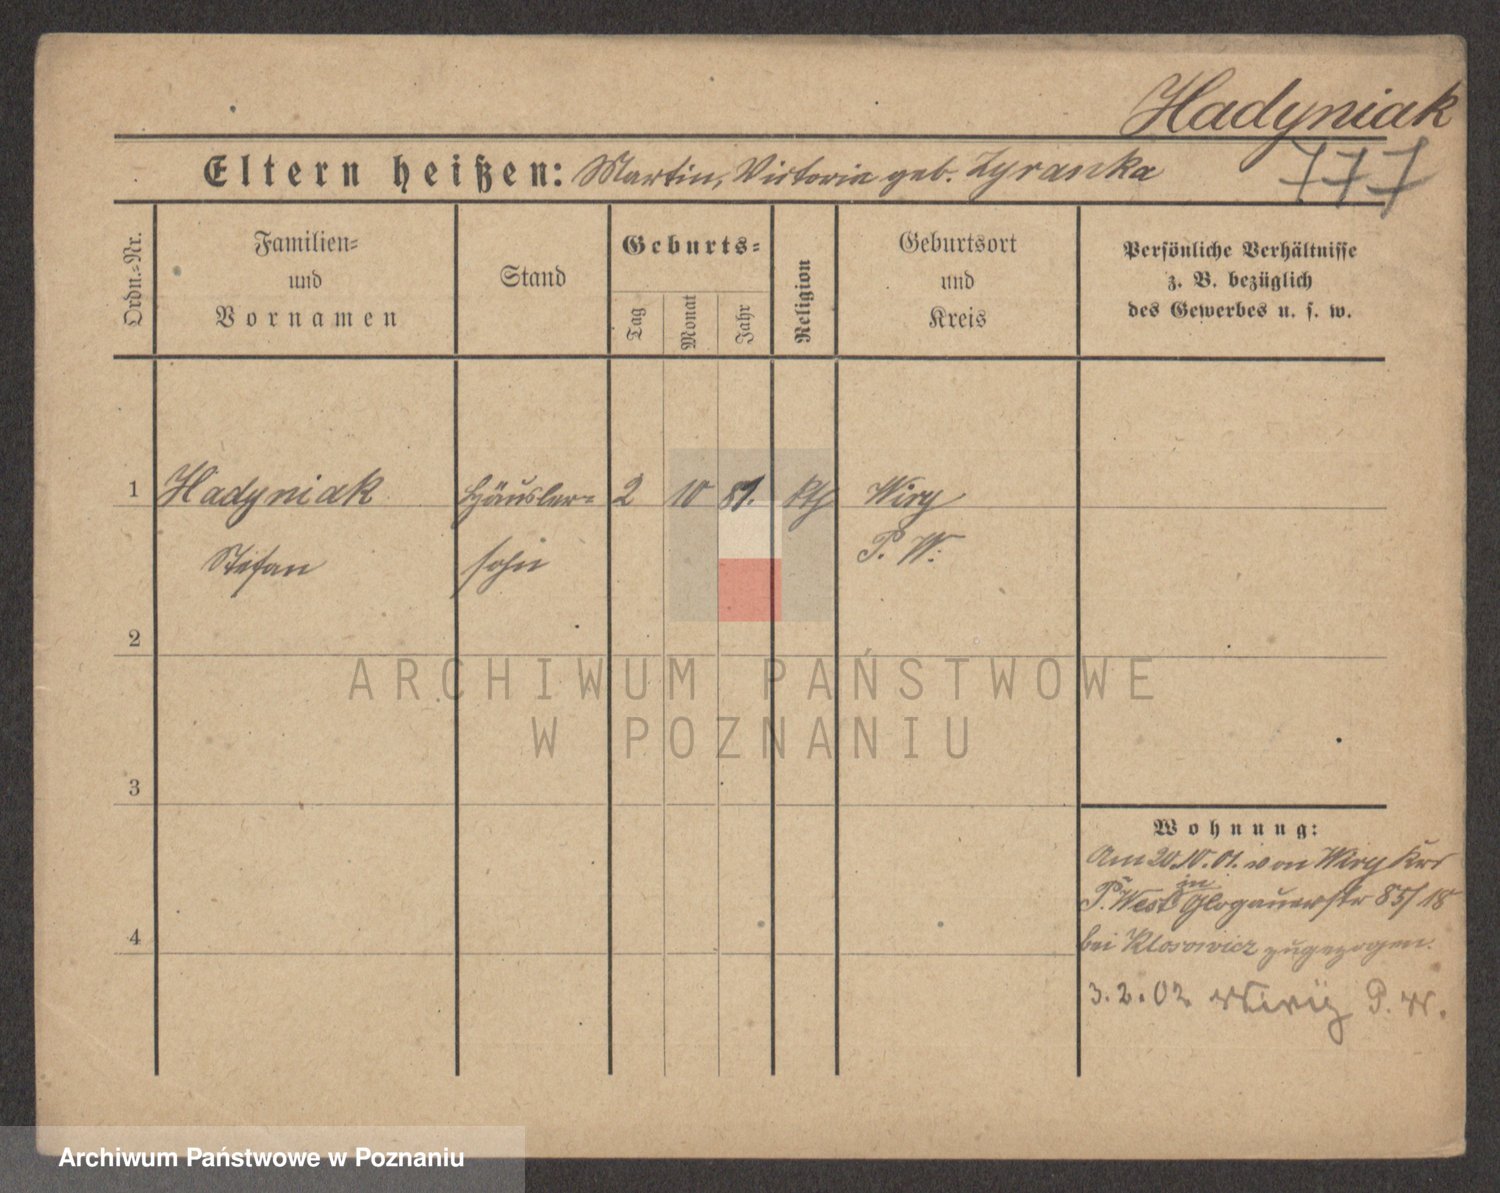 Hadyniak
777
Eltern heißen: Martin, Victoria geb. Zyranka
Ordn.-Nr.
Familien-
und
Vornamen
Stand
Geburts-
Tag
Monat
Jahr
Religion
Geburtsort
und
Kreis
Persönliche Verhältnisse
z. B. bezüglich
des Gewerbes u. s. w.
1 Hadyniak Häusler- 2 10 81. kth Wiry
Stefan sohn P. W.
2
ARCHIWUM PAŃSTWOWE
W POZNANIU
3
Wohnung:
Am 20.10.01. von Wiry Krs
P. West in Glogauerstr 85/18
4
bei Klosowicz zugezogen.
3.2.02 Wiry P. W.
Archiwum Państwowe w Poznaniu